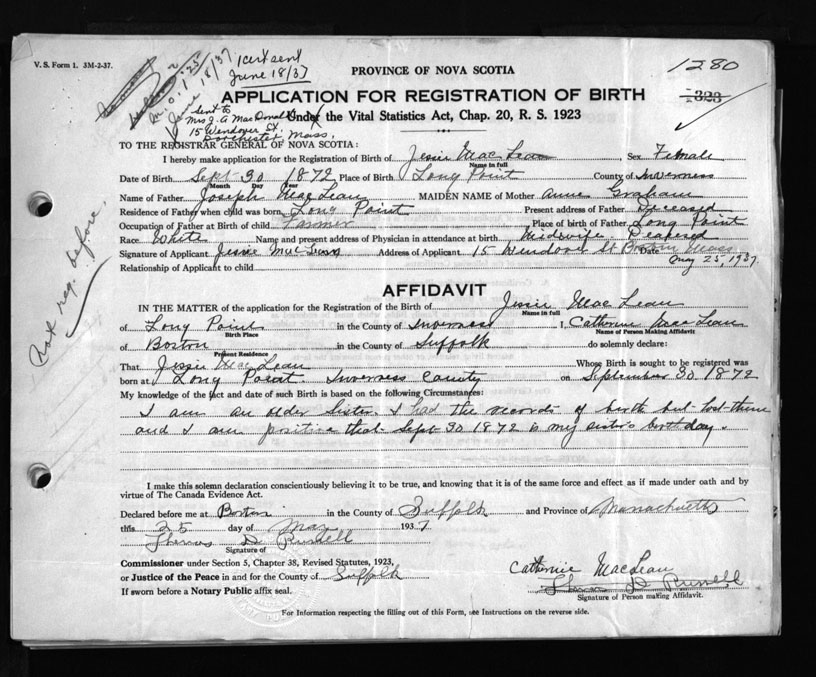 V. S. Form 1. 3M-2-37.
1 cert sent
June 18/37
1280
323
PROVINCE OF NOVA SCOTIA
APPLICATION FOR REGISTRATION OF BIRTH
Under the Vital Statistics Act, Chap. 20, R. S. 1923
June 18/37
sent to
Mrs J. A. MacDonald
15 Wendover St.
Dorchester Mass.
TO THE REGISTRAR GENERAL OF NOVA SCOTIA:
I hereby make application for the Registration of Birth of Jessie Mac Lean Sex Female
Name in full
Date of Birth Sept 30 1872 Place of Birth Long Point County of Inverness
Month Day Year
Name of Father Joseph MacLean MAIDEN NAME of Mother Anne Graham
Residence of Father when child was born Long Point Present address of Father Deceased
Occupation of Father at Birth of child Farmer Place of birth of Father Long Point
Race White Name and present address of Physician in attendance at birth Midwife
Signature of Applicant Jessie MacLean Address of Applicant 15 Wendover St Boston Mass Date May 25, 1937
Relationship of Applicant to child
Not reg. before.
AFFIDAVIT
IN THE MATTER of the application for the Registration of the Birth of Jessie Mac Lean
Name in full
of Long Point in the County of Inverness I, Catherine MacLean
Birth Place Name of Person Making Affidavit
of Boston in the County of Suffolk do solemnly declare:
Present Residence
That Jessie MacLean Whose Birth is sought to be registered was
born at Long Point. Inverness County on September 30 1872
My knowledge of the fact and date of such Birth is based on the following Circumstances:
I am an older sister. I had the records of birth but lost them
and I am positive that Sept 30 1872 is my sister's birthday.
I make this solemn declaration conscientiously believing it to be true, and knowing that it is of the same force and effect as if made under oath and by
virtue of The Canada Evidence Act.
Declared before me at Boston in the County of Suffolk and Province of Massachusetts
this 25 day of May 1937
Thomas D. Russell
Signature of
Commissioner under Section 5, Chapter 38, Revised Statutes, 1923,
or Justice of the Peace in and for the County of Suffolk
If sworn before a Notary Public affix seal.
Catherine MacLean
Thomas D. Russell
Signature of Person making Affidavit.
For Information respecting the filling out of this Form, see Instructions on the reverse side.